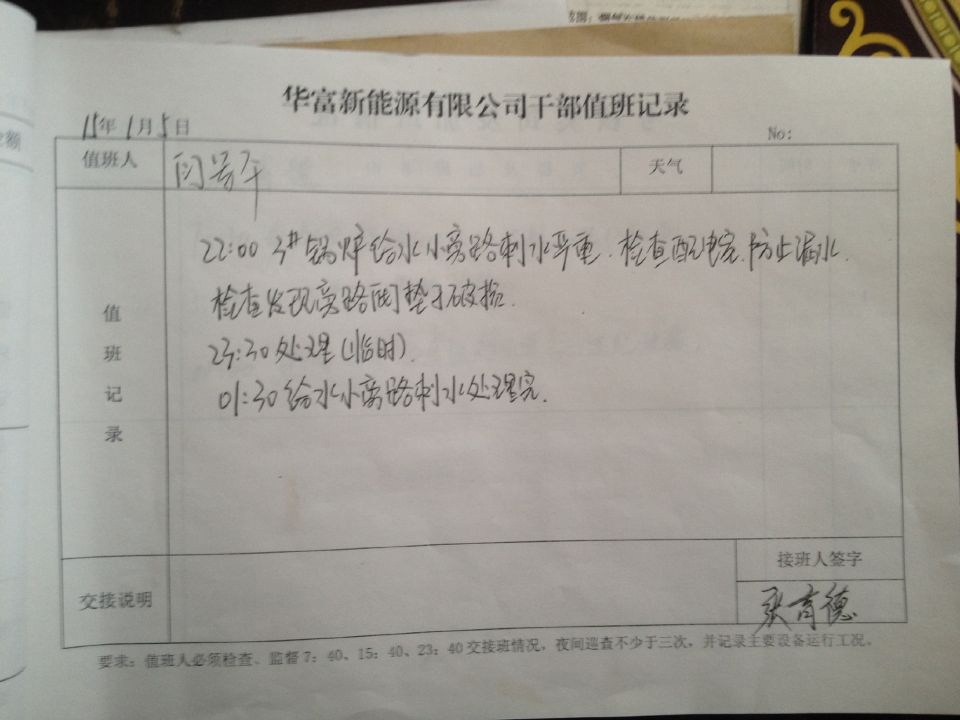 华富新能源有限公司干部值班记录
15年1月5日
No:
值班人
天气
值班记录
22:00 3#锅炉给水小旁路刺水严重.检查配电室.防止漏水.
检查发现旁路阀垫子破损.
23:30处理(临时).
01:30给水小旁路刺水处理完.
接班人签字
交接说明
张育德
要求:值班人必须检查、监督7:40、15:40、23:40交接班情况,夜间巡查不少于三次,并记录主要设备运行工况。